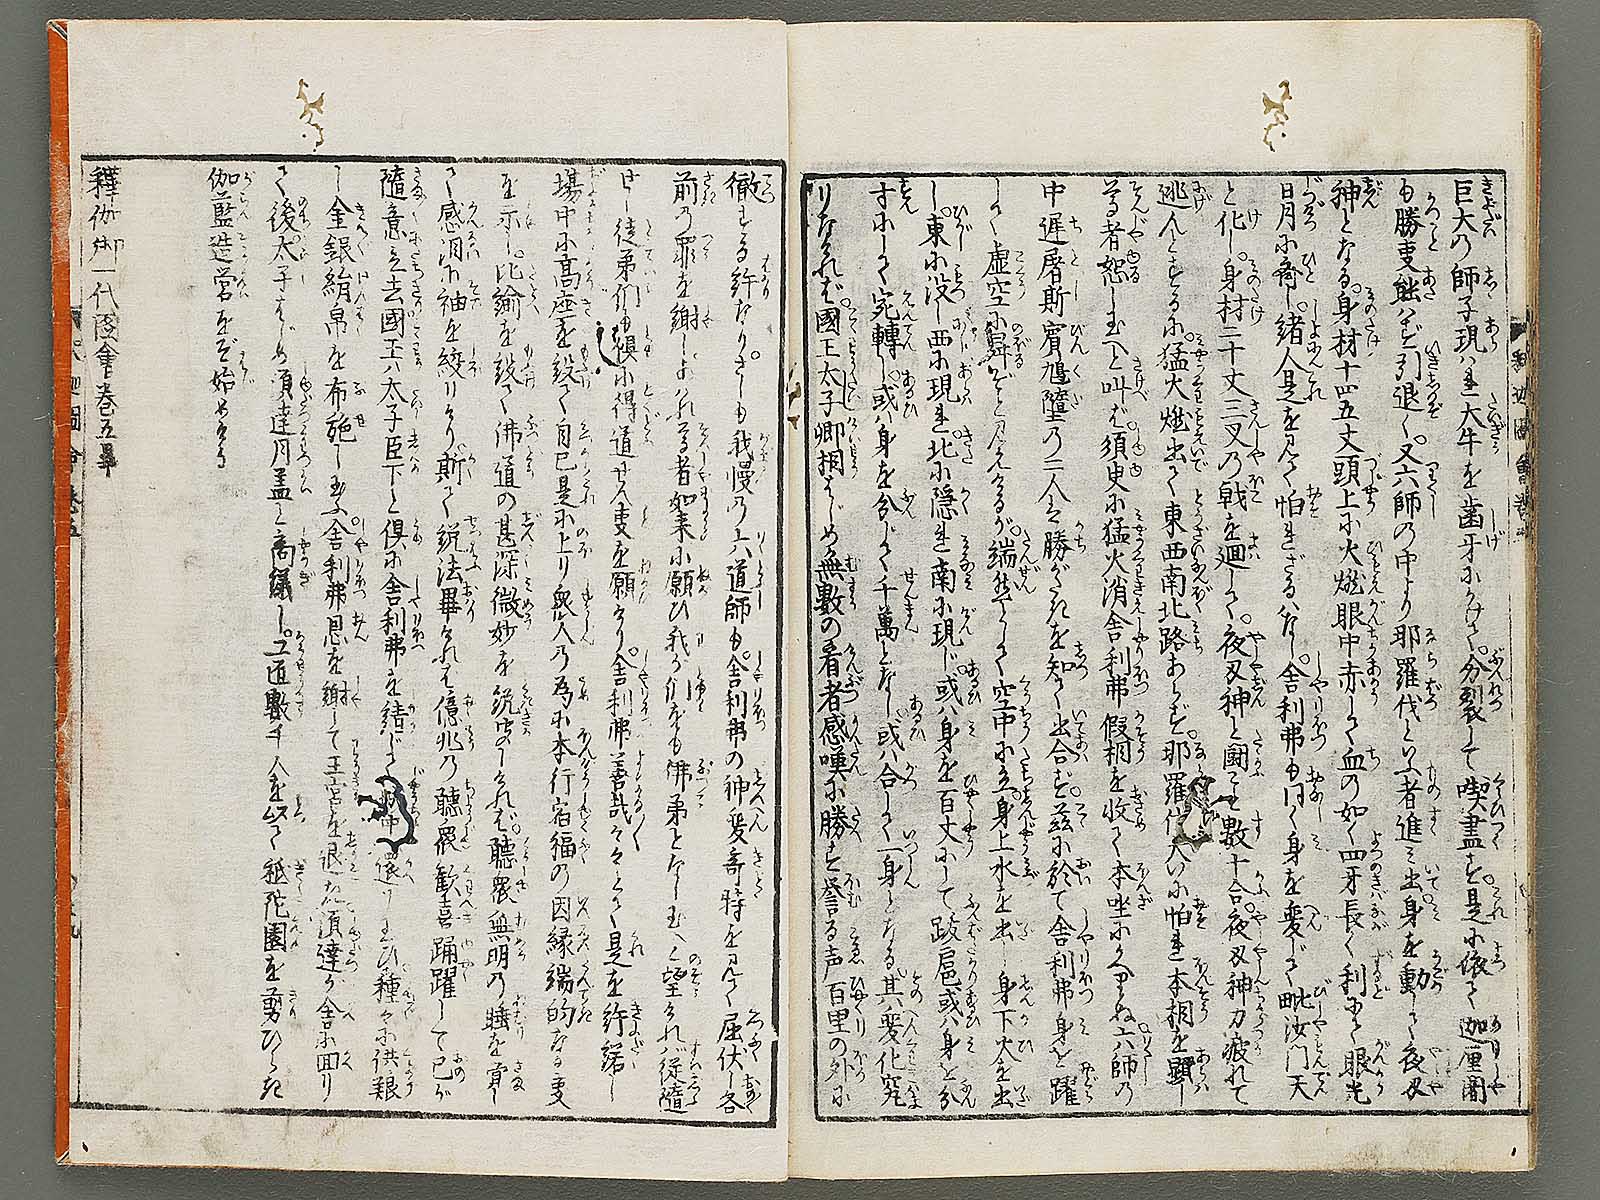 巨大の師子現はれ大牛を歯牙にかけて分裂して喫盡す。是に依て迦毘闍
も勝叓能はず引退く。又六師の中より耶羅伐といふ者進み出身を動して夜叉
神となる。身材十四五丈頭上に火燃眼中赤して血の如く四牙長く利にして眼光
日月に斉し。緒人是を見て怕れざるはなし。舎利弗も同く身を変じて毗沙門天
と化し。身材二十丈三叉の戟を廻して。夜叉神と闘こと数十合。夜叉神力疲れて
逃んとするに。猛火燃出て東西南北路あらず。耶羅伐大いに怕れ本相を顕し
尊者恕し玉へと叫ば。須臾に猛火消舎利弗假相を收て本坐にかへりぬ。六師の
中遅屠斯賓鳩墮の二人は勝がたきを知て出合ず。茲に於て舎利弗身を躍
して虚空に昇ぞと見えけるが。端然として空中に立。身上水を出し身下火を出
し。東に没し西に現れ北に隠れ南に現じ。或は身を百丈にして跋扈或は身を分
すにして宛轉し。或は身を分して千萬となし。或は合して一身となる其変化究
りなければ。國王太子卿相はじめ無數の看者感嘆に勝ず誉る声百里の外に
徹する許なり。さしも我慢の六道師も。舎利弗の神変奇特を見て屈伏し各
前の罪を謝しよりはれ尊者如来に願ひ我が們をも佛弟となし玉へと望ければ従隨
せし徒弟們も倶に得道せん叓を願けり。舎利弗善哉々々とて是を許諾し
場中に高座を設て自己是に上り衆人の為に本行宿福の因縁端的なる叓
を示し。比諭を設て佛道の甚深微妙を説玉ひしければ。聴衆無明の睡を覚し
て感涙に袖を絞りけり。斯て説法畢ければ億兆の聴衆歓喜踊躍して己が
隨意立去國王は太子臣下と倶に舎利弗を請じて城中に還り玉ひ種々に供饌
し金銀絹帛を布施し玉ふ舎利弗恩を謝して王宮を退た須達が舎に回り
て後太子をはじめ須達月盖と商議し。工匠數千人を以て祇陀園を剪ひらき
伽藍造営をぞ始めける
釋迦御一代圖會巻五畢